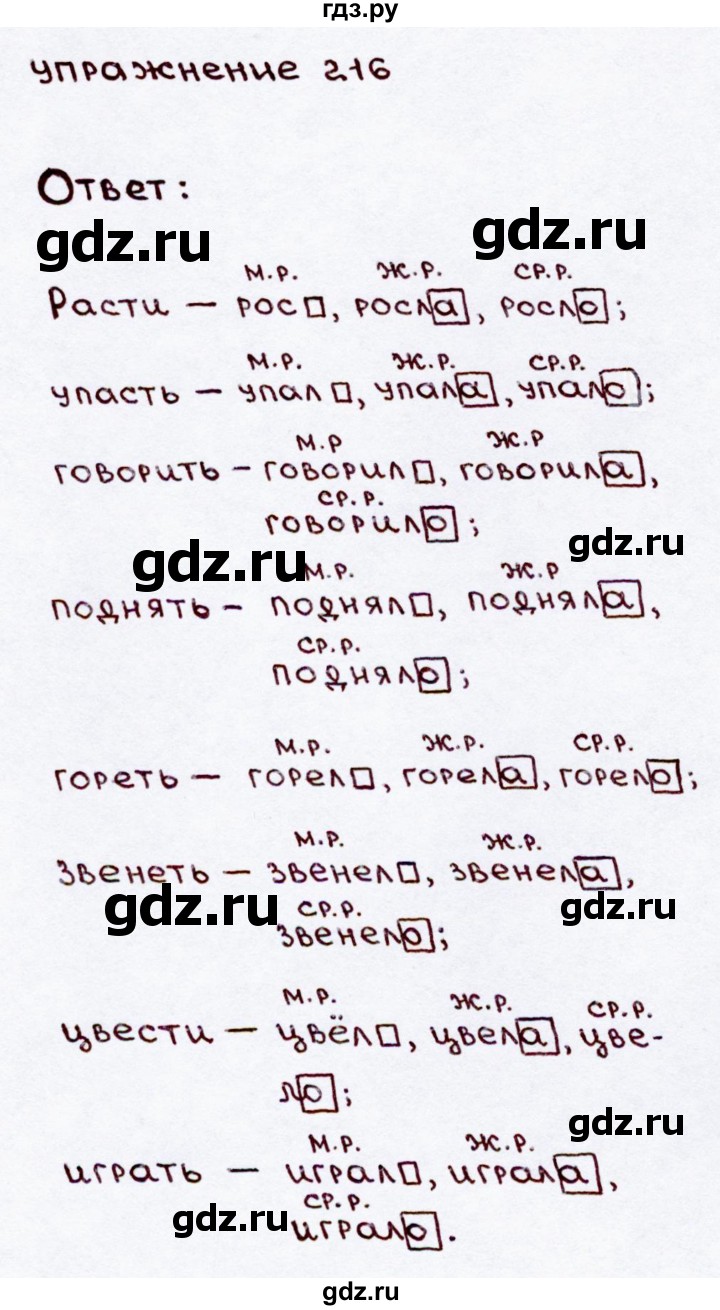 гдз.ру
упражнение 216
Ответ:
gdz.ru
gdz.ru
м.р. ж.р. ср.р.
Расти – рос□, росла, росло;
м.р. ж.р. ср.р.
упасть – упал□, упала, упало;
м.р ж.р
говорить – говорил□, говорила,
ср.р.
говорило;
gdz.ru
gdz.ru
м.р. ж.р
поднять – поднял□, подняла,
ср.р.
подняло;
м.р. ж.р. ср.р.
гореть – горел□, горела, горело;
м.р. ж.р.
звенеть – звенел□, звенела,
gdz.ru
gdz.ru
ср.р.
звенело;
м.р. ж.р. ср.р.
цвести – цвёл□, цвела, цве-
ло;
gdz.ru
м.р. ж.р.
играть – играл□, играла,
ср.р.
gdz.ru
играло.
gdz.ru